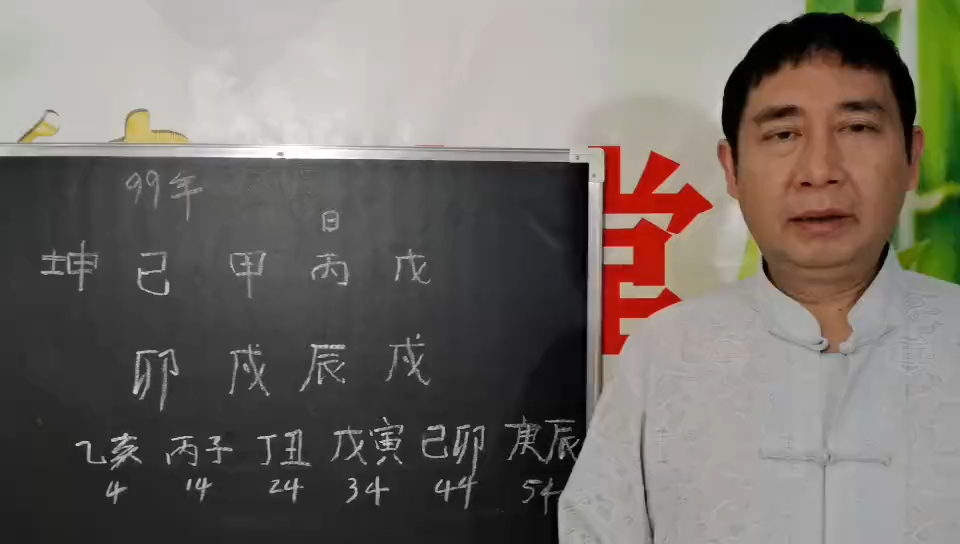 99年
日
坤 己 甲 丙 戊
卯 戌 辰 戌
乙亥 丙子 丁丑 戊寅 己卯 庚辰
4 14 24 34 44 54
堂